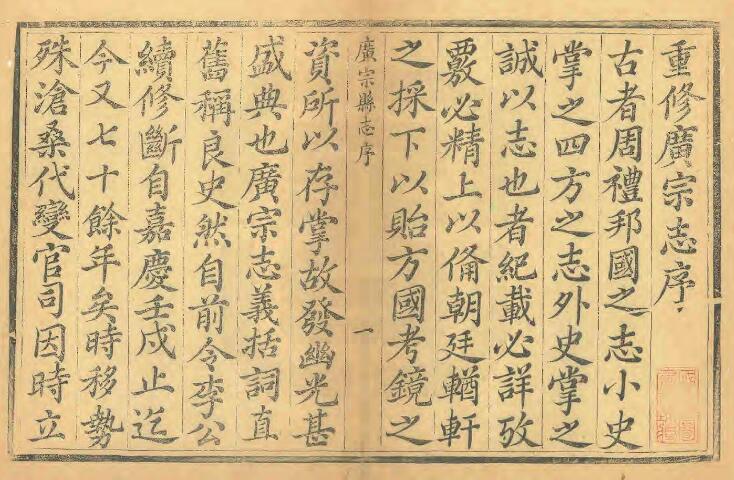 重修廣宗志序
古者周禮邦國之志小史
掌之四方之志外史掌之
誠以志也者紀載必詳攷
覈必精上以俻朝廷輶軒
之採下以貽方國考鏡之
廣宗縣志序
一
資所以存掌故發幽光甚
盛典也廣宗志義括詞直
舊稱良史然自前令李公
續修斷自嘉慶壬戍止迄
今又七十餘年矣時移勢
殊滄桑代變官司因時立